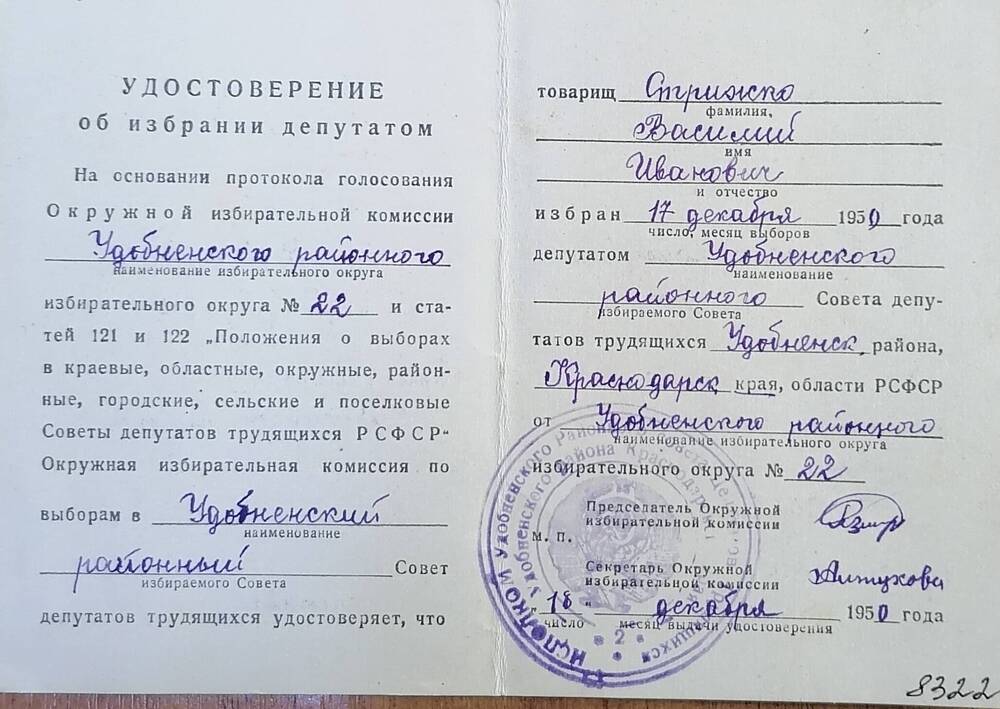 УДОСТОВЕРЕНИЕ
об избрании депутатом
На основании протокола голосования
Окружной избирательной комиссии
Удобненского районного
наименование избирательного округа
избирательного округа № 22 и ста-
тей 121 и 122 „Положения о выборах
в краевые, областные, окружные, район-
ные, городские, сельские и поселковые
Советы депутатов трудящихся РСФСР"
Окружная избирательная комиссия по
выборам в Удобненский
наименование
районный Совет
избираемого Совета
депутатов трудящихся удостоверяет, что
товарищ Стрижко
фамилия,
Василий
имя
Иванович
и отчество
избран 17 декабря 1950 года
число, месяц выборов
депутатом Удобненского
наименование
районного Совета депу-
избираемого Совета
татов трудящихся Удобненск района,
Краснодарск края, области РСФСР
от Удобненского районного
наименование избирательного округа
избирательного округа № 22
Председатель Окружной
избирательной комиссии
м. п.
Секретарь Окружной
избирательной комиссии
Алтухова
„18" декабря 1950 года
число месяц выдачи удостоверения
ИСПОЛКОМ Удобненского Район
Удобненского района Краснодарск
2
8322